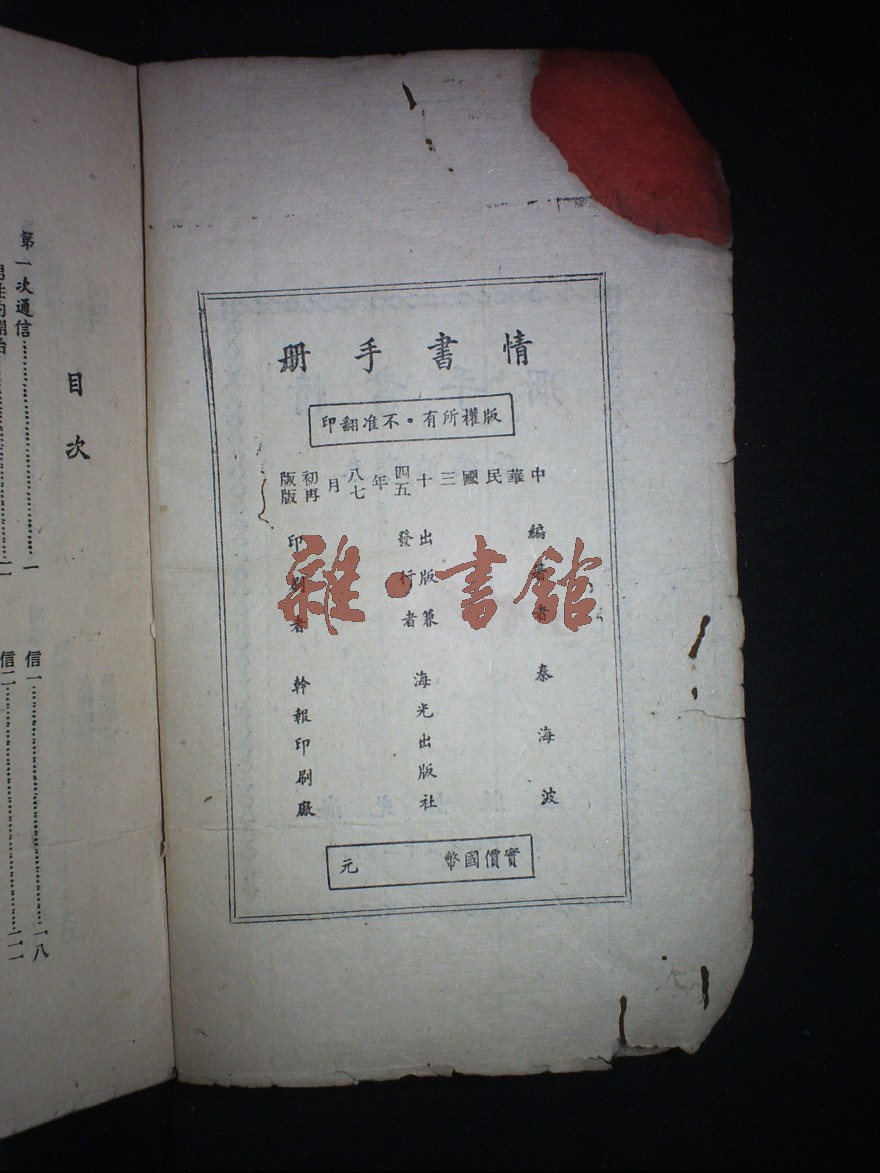 情書手册
版權所有・不准翻印
中華民國三十四年八月初版
五 七 再版
編著者 秦海波
出版兼
發行者 海光出版社
印刷者 幹報印刷廠
實價國幣 元
雜・書館
目次
第一次通信……………一
信一……………一八
信二……………